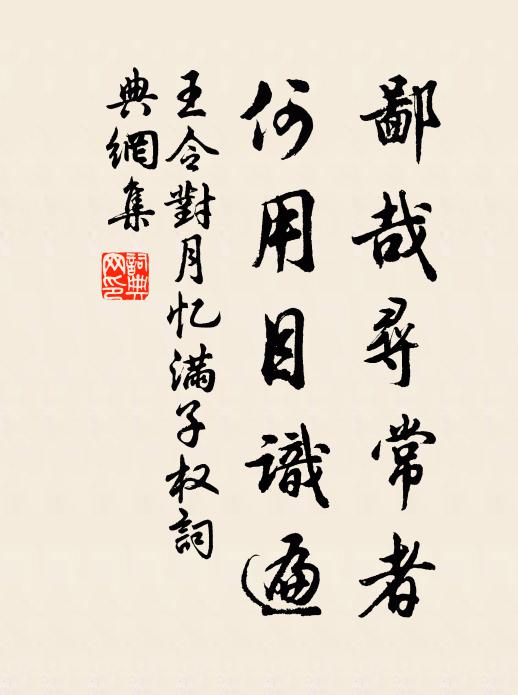 鄙哉尋常者
何用目識遍
王令對月忆满子权詞
典網集
詞典
网印